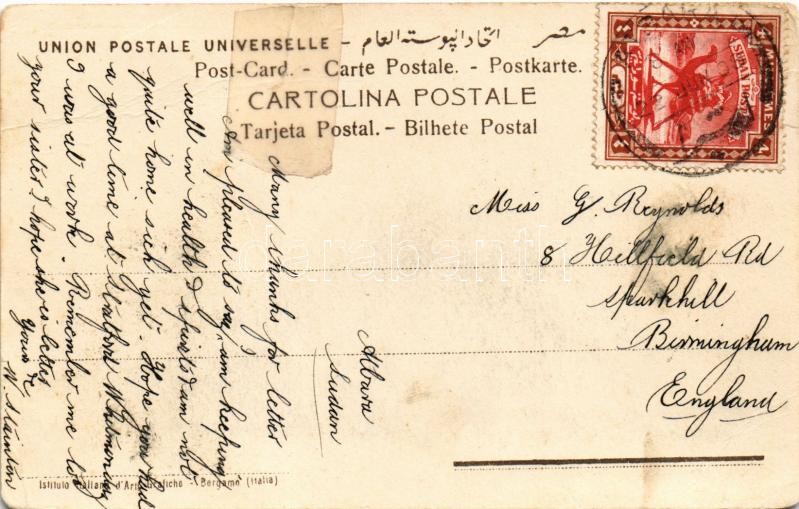 UNION POSTALE UNIVERSELLE - اتحاد البوسته العام - مصر
Post-Card. - Carte Postale. - Postkarte.
CARTOLINA POSTALE
Tarjeta Postal. - Bilhete Postal
SUDAN POSTAGE
Miss G. Reynolds
8 Hillfield Rd
Sparkhill
Birmingham
England
Atbara
Sudan
Many thanks for letter
Am pleased to say I am keeping
well in health & spirits & am not
quite home sick yet. Hope you had
a good time at Whitmonday
I was at work. Remember me to
your sister I hope she is better
Yours &c
W. Stainton
Istituto Italiano d'Arti Grafiche - Bergamo (Italia)
darabanth